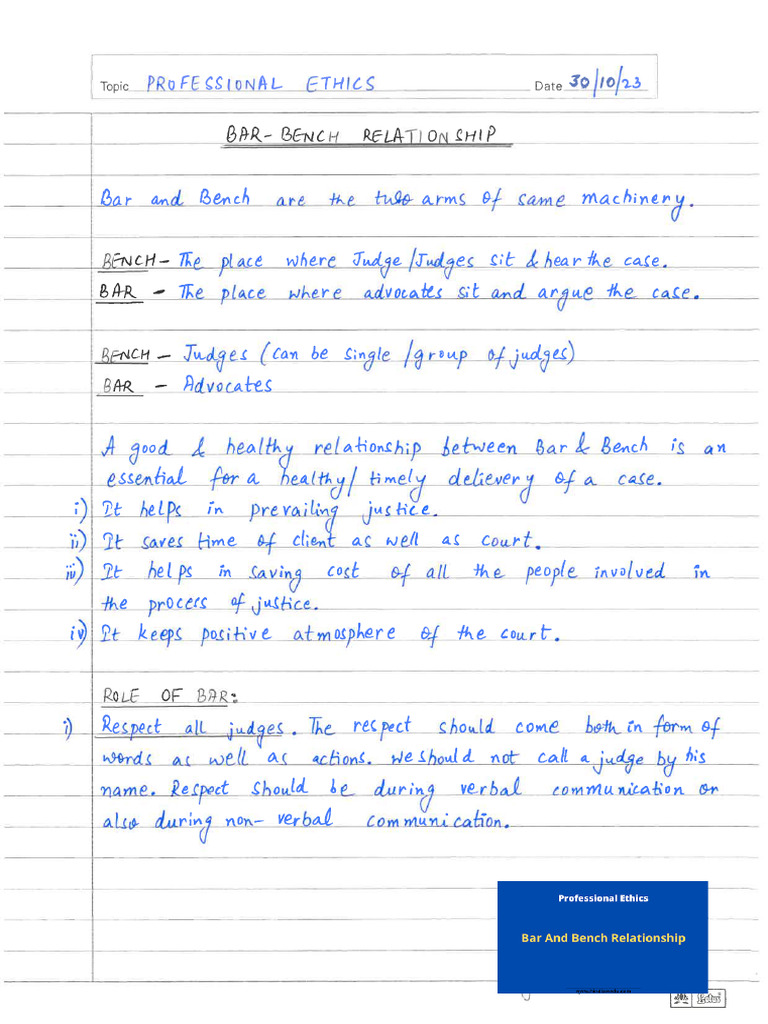 Topic PROFESSIONAL ETHICS Date 30/10/23
BAR-BENCH RELATIONSHIP
Bar and Bench are the two arms of same machinery.
BENCH - The place where Judge/Judges sit & hear the case.
BAR - The place where advocates sit and argue the case.
BENCH - Judges (can be single/group of judges)
BAR - Advocates
A good & healthy relationship between Bar & Bench is an
essential for a healthy/ timely delievery of a case.
i) It helps in prevailing justice.
ii) It saves time of client as well as court.
iii) It helps in saving cost of all the people involved in
the process of justice.
iv) It keeps positive atmosphere of the court.
ROLE OF BAR:
i) Respect all judges. The respect should come both in form of
words as well as actions. We should not call a judge by his
name. Respect should be during verbal communication or
also during non-verbal communication.
Professional Ethics
Bar And Bench Relationship
Lotus